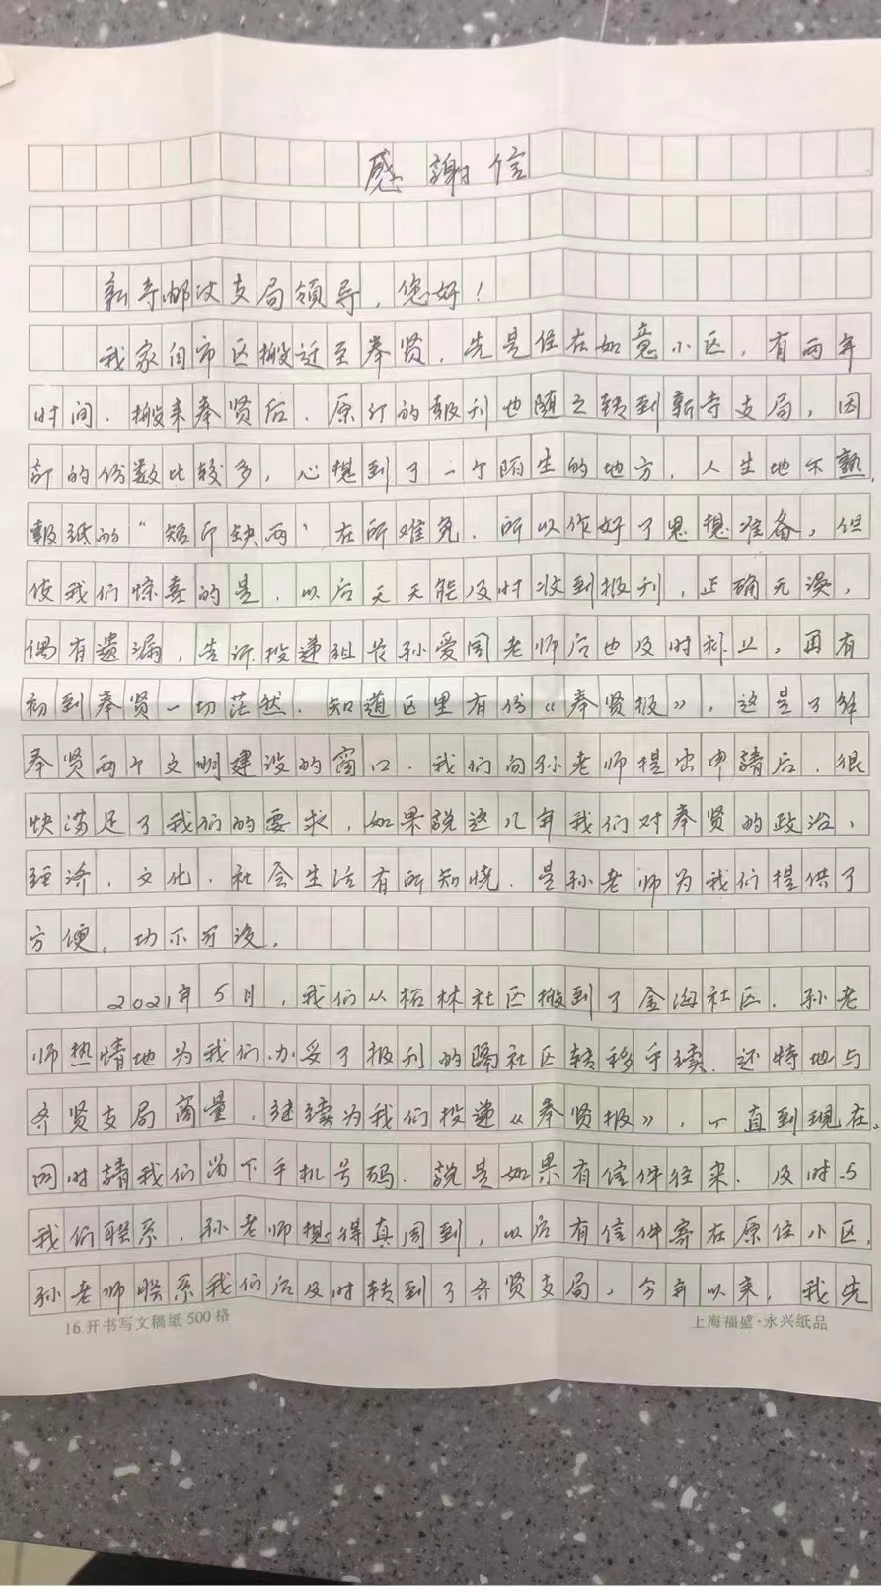 感謝信
新寺邮政支局领导，您好！
我家自市区搬迁至奉贤，先是住在如意小区，有两年
时间．搬来奉贤后．原订的报刊也随之转到新寺支局，因
訂的份数比较多，心想到了一个陌生的地方，人生地不熟，
報纸的“短斤缺两”在所难免．所以作好了思想准备，但
使我们惊喜的是，以后天天能及时收到报刊，正确无误，
偶有遗漏，告诉投递组长孙爱国老师后也及时补上，再有
初到奉贤一切茫然．知道区里有份《奉贤报》，这是了解
奉贤两个文明建设的窗口．我们向孙老师提出申請后．很
快满足了我们的要求，如果说这几年我们对奉贤的政治，
经济，文化．社会生活有所知晓．是孙老师为我们提供了
方便，功不可没．
2021年5月，我们从柘林社区搬到了金海社区．孙老
师热情地为我们办妥了报刊的隔社区转移手续．还特地与
齐贤支局商量，继续为我们投递《奉贤报》，一直到现在。
同时請我们留下手机号码．说是如果有信件往来．及时与
我们联系．孙老师想得真周到，以后有信件寄在原住小区，
孙老师联系我们后及时转到了齐贤支局，今年以来，我先
16开书写文稿紙500格
上海福盛·永兴纸品